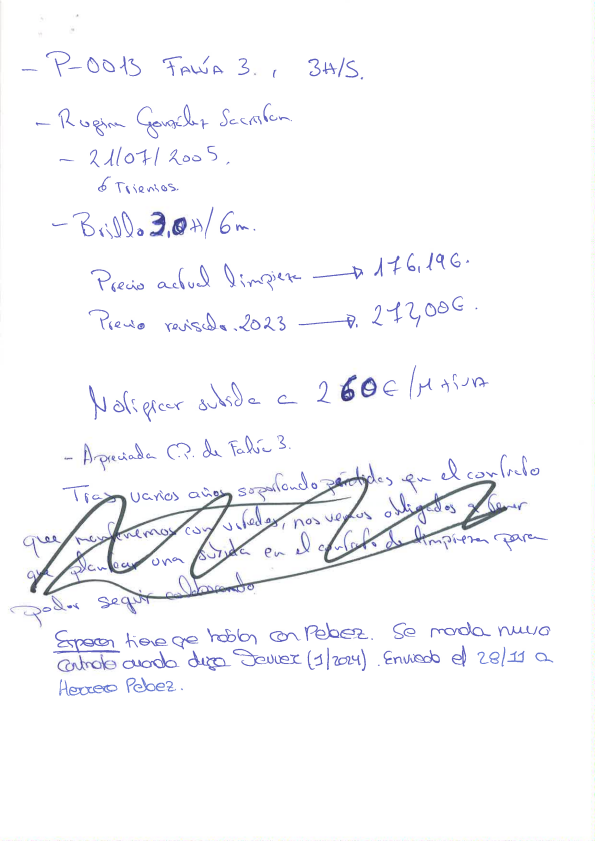 - P-0013 FALÚA 3. , 3H/S.
- Regina González Sacristan
- 21/07/2005.
6 Trienios.
- Brillo 3,0H/6m.
Precio actual limpieza → 176,19€.
Precio revisado 2023 → 272,00€.
Notificar subida a 260€/M +IVA
- Apreciada C.P. de Falúa 3.
Tras varios años soportando pérdidas en el contrato
que mantenemos con ustedes, nos vemos obligados a tener
que plantear una subida en el contrato de limpieza para
poder seguir colaborando.
Esperar tiene que hablar con Pebez. Se manda nuevo
contrato cuando diga Javier (1/2024). Enviado el 28/11 a
Herrero Pebez.